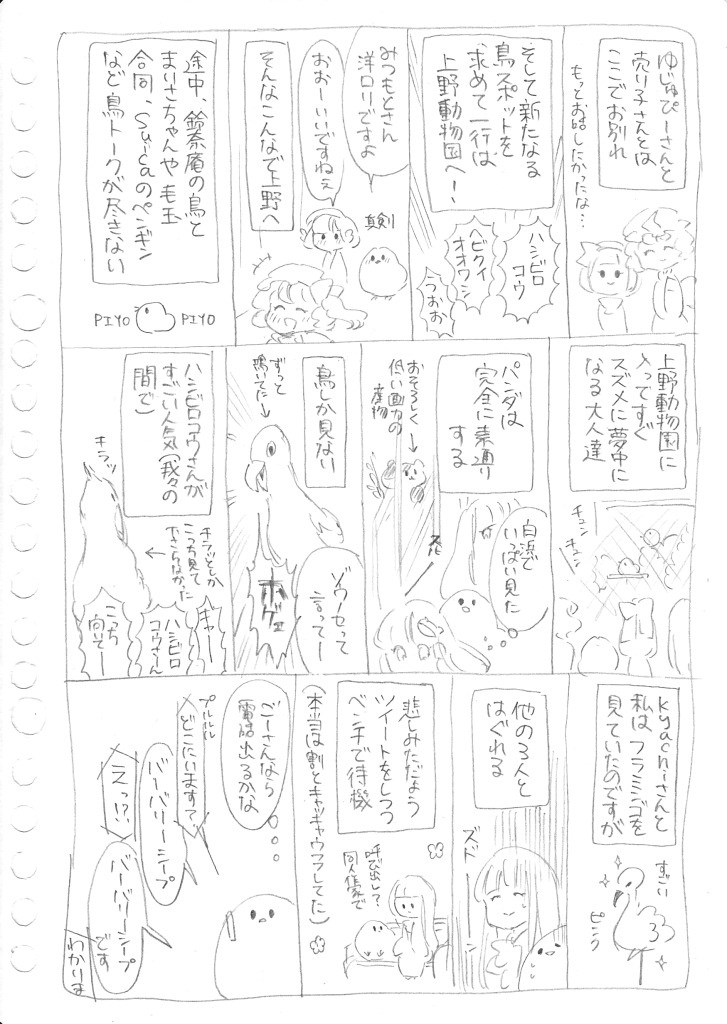 ゆじゅぴーさんと
売り子さんとは
ここでお別れ
もっとお話したかったな…
そして新たなる
鳥スポットを
求めて一行は
上野動物園へ!
ハシビロ
コウ
ヘビクイ
オオワシ
うおお
みつもとさん
洋ロリですよ
おおーいいですねぇ
真剣
そんなこんなで上野へ
途中、鈴奈庵の鳥と
まりさちゃんや毛玉
合同、Suicaのペンギン
など鳥トークが尽きない
PIYO
PIYO
上野動物園に
入ってすぐ
スズメに夢中に
なる大人達
チュン
チュン
パンダは
完全に素通り
する
白浜で
いっぱい見た
おそろしく
低い画力の
産物
鳥しか見ない
ずっと
鳴いてた
ゾウーセって
言ってー
ホゲェ
ハシビロコウさんが
すごい人気(我々の
間で)
キラッ
チラッとしか
こっち見て
下さらなかった
キャー
ハシビロ
コウさん
こっち
向いてー
Kyachiさんと
私はフラミンゴを
見ていたのですが
すごい
ピンク
他の3人と
はぐれる
ズド
悲しみだよう
ツイートをしつつ
ベンチで待機
(本当は割とキャッキャウフフしてた)
呼び出して?
同人作家で
ごーさんなら
電話出るかな
プルルル
どこにいます?
バーバリーシープ
えっ!?
バーバリーシープ
です
わかりま